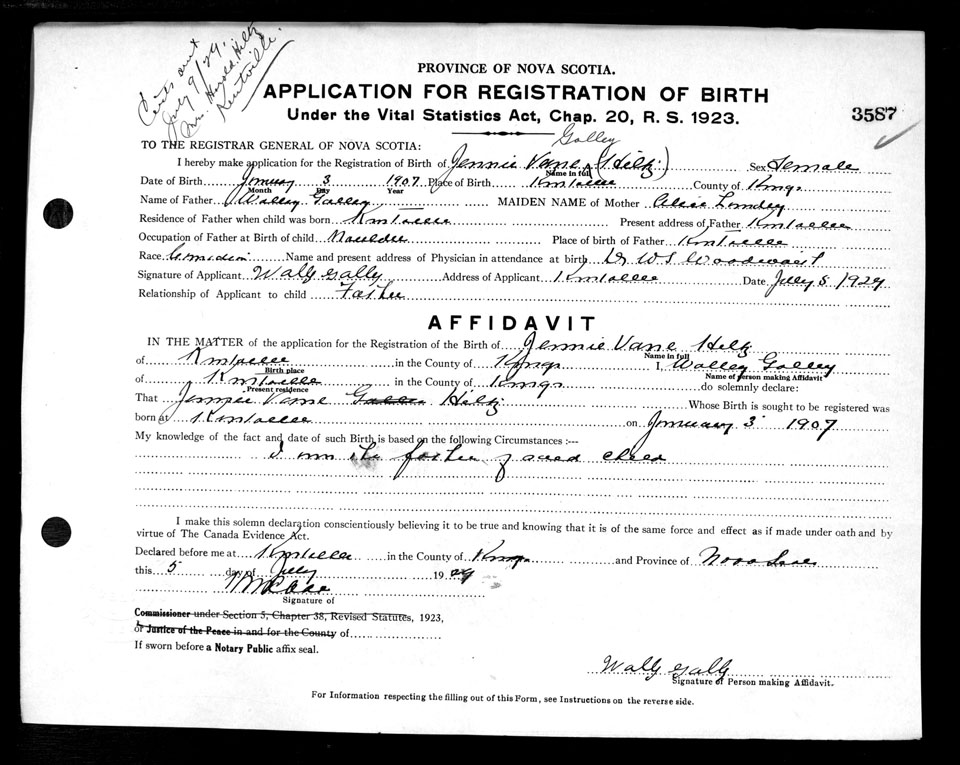 Certs sent
July 9/29.
Mrs. Harold Hiltz
Kentville.
PROVINCE OF NOVA SCOTIA.
APPLICATION FOR REGISTRATION OF BIRTH
Under the Vital Statistics Act, Chap. 20, R. S. 1923.
3587
TO THE REGISTRAR GENERAL OF NOVA SCOTIA:
Galley
I hereby make application for the Registration of Birth of Jennie Vane (Hiltz) Sex Female
Name in full
Date of Birth January 3 1907 Place of Birth Kentville County of Kings
Month Day Year
Name of Father Walley Galley MAIDEN NAME of Mother
Residence of Father when child was born Kentville Present address of Father Kentville
Occupation of Father at Birth of child Moulder Place of birth of Father Kentville
Race Canadian Name and present address of Physician in attendance at birth Dr WS Woodworth
Signature of Applicant Wally Gally Address of Applicant Kentville Date July 5 1929
Relationship of Applicant to child Father
AFFIDAVIT
IN THE MATTER of the application for the Registration of the Birth of Jennie Vane Hiltz
Name in full
of Kentville in the County of Kings I, Walley Galley
Birth place Name of person making Affidavit
of Kentville in the County of Kings do solemnly declare:
Present residence
That Jennie Vane Galley Hiltz Whose Birth is sought to be registered was
born at Kentville on January 3 1907
My knowledge of the fact and date of such Birth is based on the following Circumstances :—
I am the father of said child
I make this solemn declaration conscientiously believing it to be true and knowing that it is of the same force and effect as if made under oath and by
virtue of The Canada Evidence Act.
Declared before me at Kentville in the County of Kings and Province of Nova Scotia
this 5 day of July 1929
Signature of
Commissioner under Section 5, Chapter 38, Revised Statutes, 1923,
or Justice of the Peace in and for the County of
If sworn before a Notary Public affix seal.
Wally Gally
Signature of Person making Affidavit.
For Information respecting the filling out of this Form, see Instructions on the reverse side.